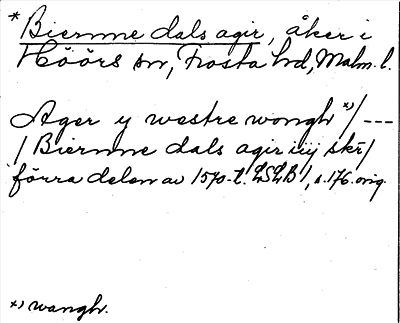 * Biermme dals agir, åker i
Höörs sn, Frosta hd, Malm. l.
Ager y westre wongh *)/ ---
/ Biermme dals agir iiij skr/
förra delen av 1570-t. LSLB 1, s. 176. orig.
*) wangh.